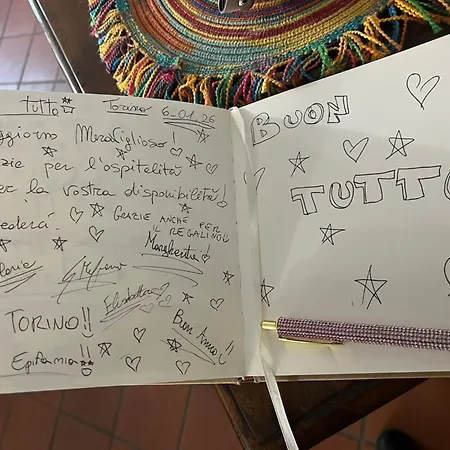 tutto Torino 6_01_26
ggiorno Meraviglioso!
zie per l'ospitalità
per la vostra disponibilità!
vederà. GRAZIE ANCHE PER
IL REGALINO
Margherita!
Elisabetta
TORINO!!
Buon Anno!!
Epifania!!
BUON
TUTTO